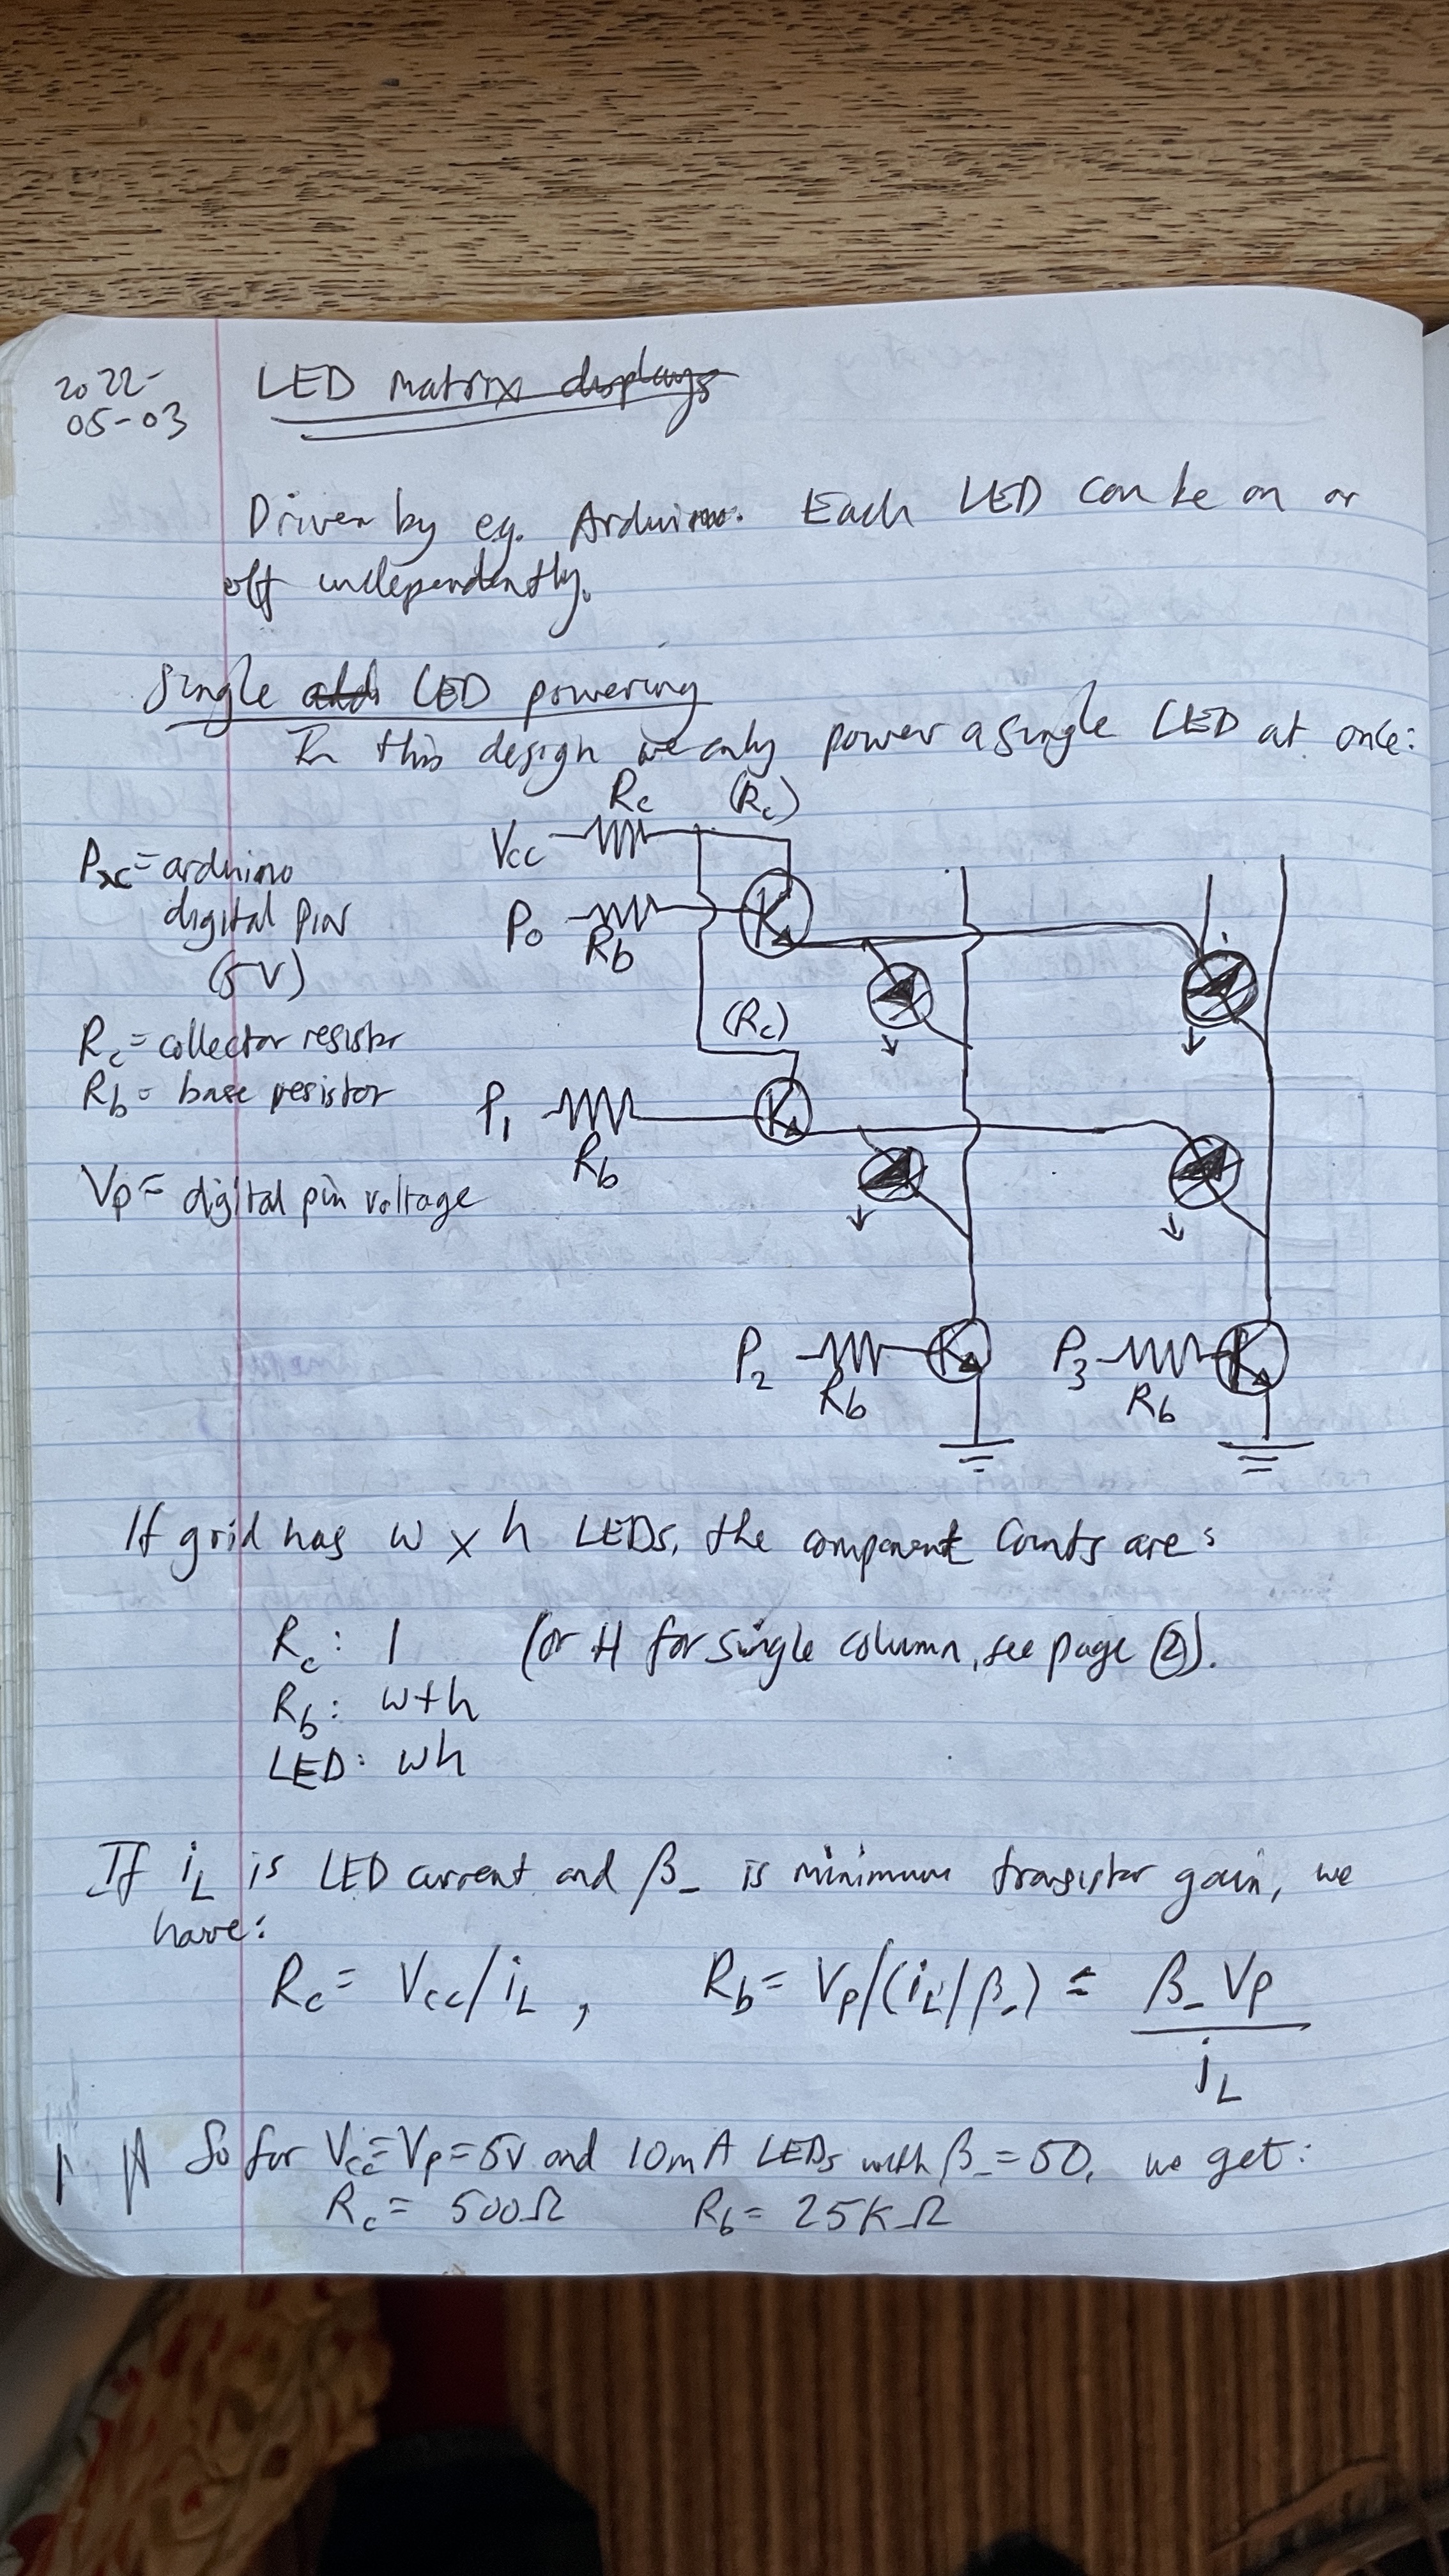 2022-
05-03
LED matrix displays
Driven by eg. Arduino. Each LED can be on or
off independently.
Single LED powering
In this design we only power a single LED at once:
Rc (Rc)
Vcc
Px = arduino
digital pin
(5V)
P0
Rb
(Rc)
Rc = collector resistor
Rb = base resistor
P1
Rb
Vp = digital pin voltage
P2 P3
Rb Rb
If grid has w x h LEDs, the component counts are:
Rc: 1 (or H for single column, see page ②).
Rb: w+h
LED: wh
If iL is LED current and β_ is minimum transistor gain, we
have:
Rc = Vcc/iL , Rb = Vp/(iL/β_) = β_ Vp
iL
So for Vcc=Vp=5V and 10mA LEDs with β_=50, we get:
Rc = 500Ω Rb = 25KΩ